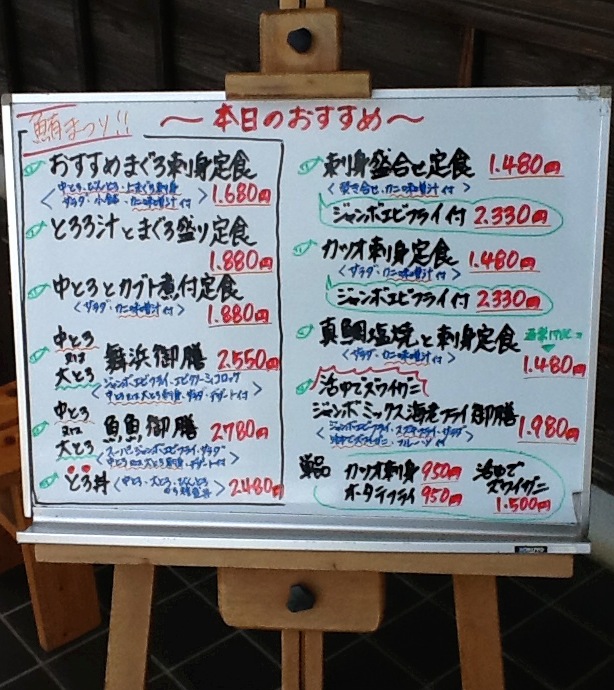 鮪まつり!!
～本日のおすすめ～
おすすめまぐろ刺身定食
サラダ・小鉢・カニ味噌汁付
1.680円
とろろ汁とまぐろ盛り定食
1.880円
中とろとカブト煮付定食
<サラダ・カニ味噌汁付>
1.880円
中とろ
又は
大とろ
舞浜御膳 2.550円
中とろ又は大とろ刺身・サラダ・デザート付
中とろ
又は
大とろ
魚魚御膳 2780円
スーパージャンボエビフライ・サラダ
中とろ又は大とろ刺身・デザート付
とろ丼
2480円
刺身盛合せ定食 1.480円
<炊き合せ・カニ味噌汁付>
ジャンボエビフライ付 2.330円
カツオ刺身定食 1.480円
<サラダ・カニ味噌汁付>
ジャンボエビフライ付 2330円
真鯛塩焼と刺身定食
<サラダ・カニ味噌汁付>
1.480円
活ゆでズワイガニ
ジャンボミックス海老フライ御膳 1.980円
単品 カツオ刺身 950円
ホタテフライ 950円
活ゆで
ズワイガニ
1.500円
KOKUYO